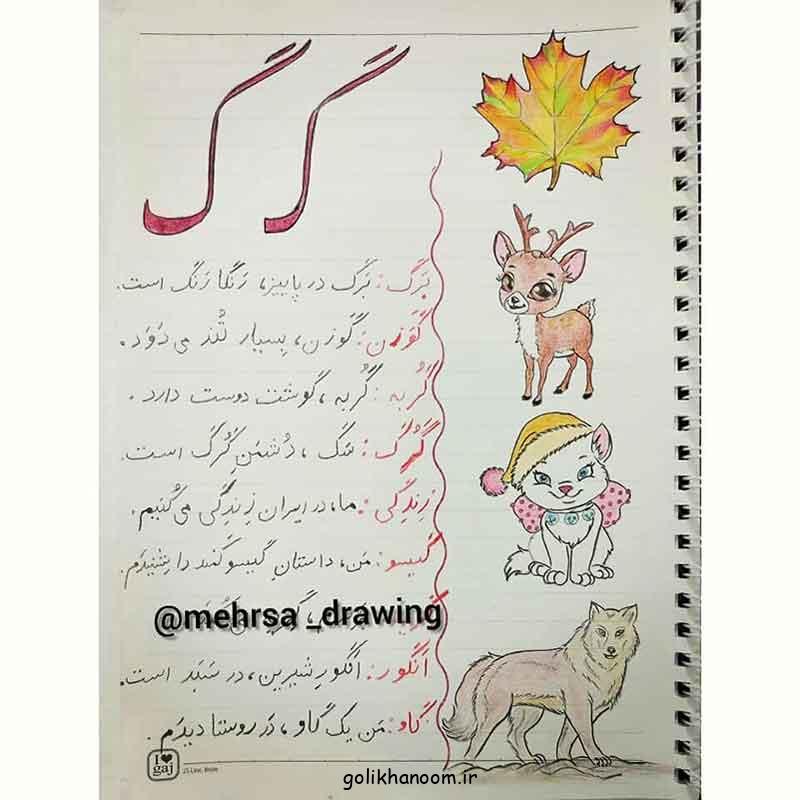 گ گ
بَرگ: بَرگ در پاییز، رَنگارَنگ است.
گَوَزن: گَوَزن، بِسیار تُند می دَوَد.
گُربه: گُربه، گوشت دوست دارد.
گُرگ: سَگ، دُشمَنِ گُرگ است.
زِندِگی: ما، در ایران زِندِگی می کُنیم.
گیسو: مَن، داستانِ گیسو کَمَند را شِنیدَم.
@mehrsa_drawing
اَنگور: اَنگورِ شیرین، در سَبَد است.
گاو: مَن یک گاو، دَر روستا دیدَم.
I ♥ gaj
25 Line, 8mm
golikhanoom.ir